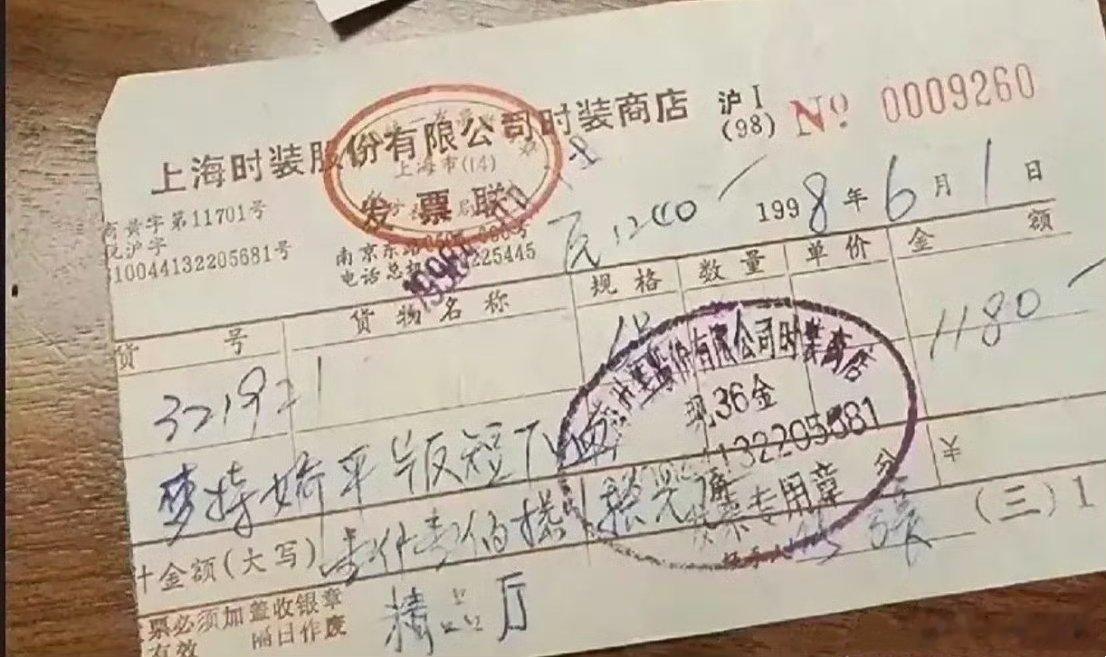 上海时装股份有限公司时装商店 沪I (98) No 0009260
上海市(14)
发票联
商黄字第11701号
税沪字
310044132205681号
南京东路
电话总机 225445
1200
1998年6月1日
货号 货物名称 规格 数量 单价 金额
321921 1180
梦特娇平板短
计金额(大写) 壹仟壹佰捌
分 ¥
时装股份有限公司时装商店
现36金
132205681
发票专用章
(三)1
票必须加盖收银章
有效 隔日作废
精品厅